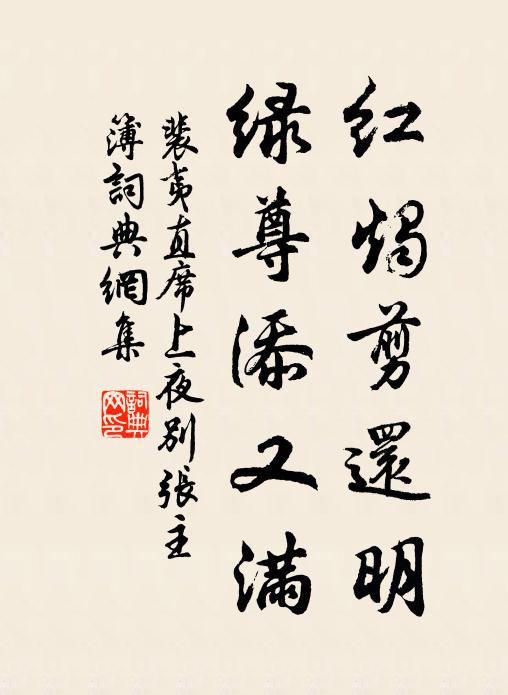 红烛剪還明
绿尊添又满
裴夷直席上夜别張主
簿詞典網集
詞典网印